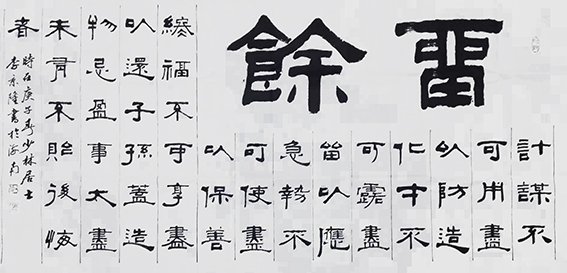 畱餘
計謀不
可用盡
以防造
化才不
可露盡
留以應
急勢不
可使盡
以保善
緣福不可享盡
以還子孫蓋造
物忌盈事太盡
未有不貽後悔
者
時在庚子春少林居士
李京隆書於海南